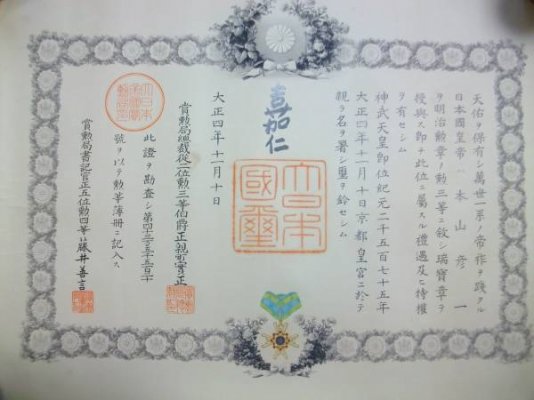 天佑ヲ保有シ萬世一系ノ帝祚ヲ踐タル
日本國皇帝ハ本山彦一
ヲ明治勲章ノ勲三等ニ敍シ瑞寶章ヲ
授與ス即チ此位ニ屬スル禮遇及ヒ特權
ヲ有セシム
神武天皇即位紀元二千五百七十五年
大正四年十一月十日京都皇宮ニ於テ
親ラ名ヲ署シ璽ヲ鈐セシム
嘉仁
大日本國璽
大正四年十一月十日
賞勲局總裁從二位勲三等伯爵正親町實正
此證ヲ勘査シ第四十三
號ヲ以テ勲等簿册ニ記入ス
賞勲局書記官正五位勲四等藤井善言